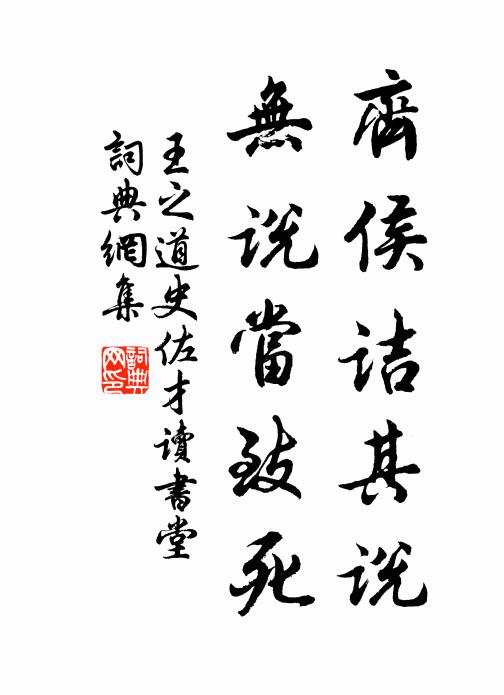 齊侯詰其說
無說當致死
王之道史佐才讀書堂
詞典網集
詞典網印